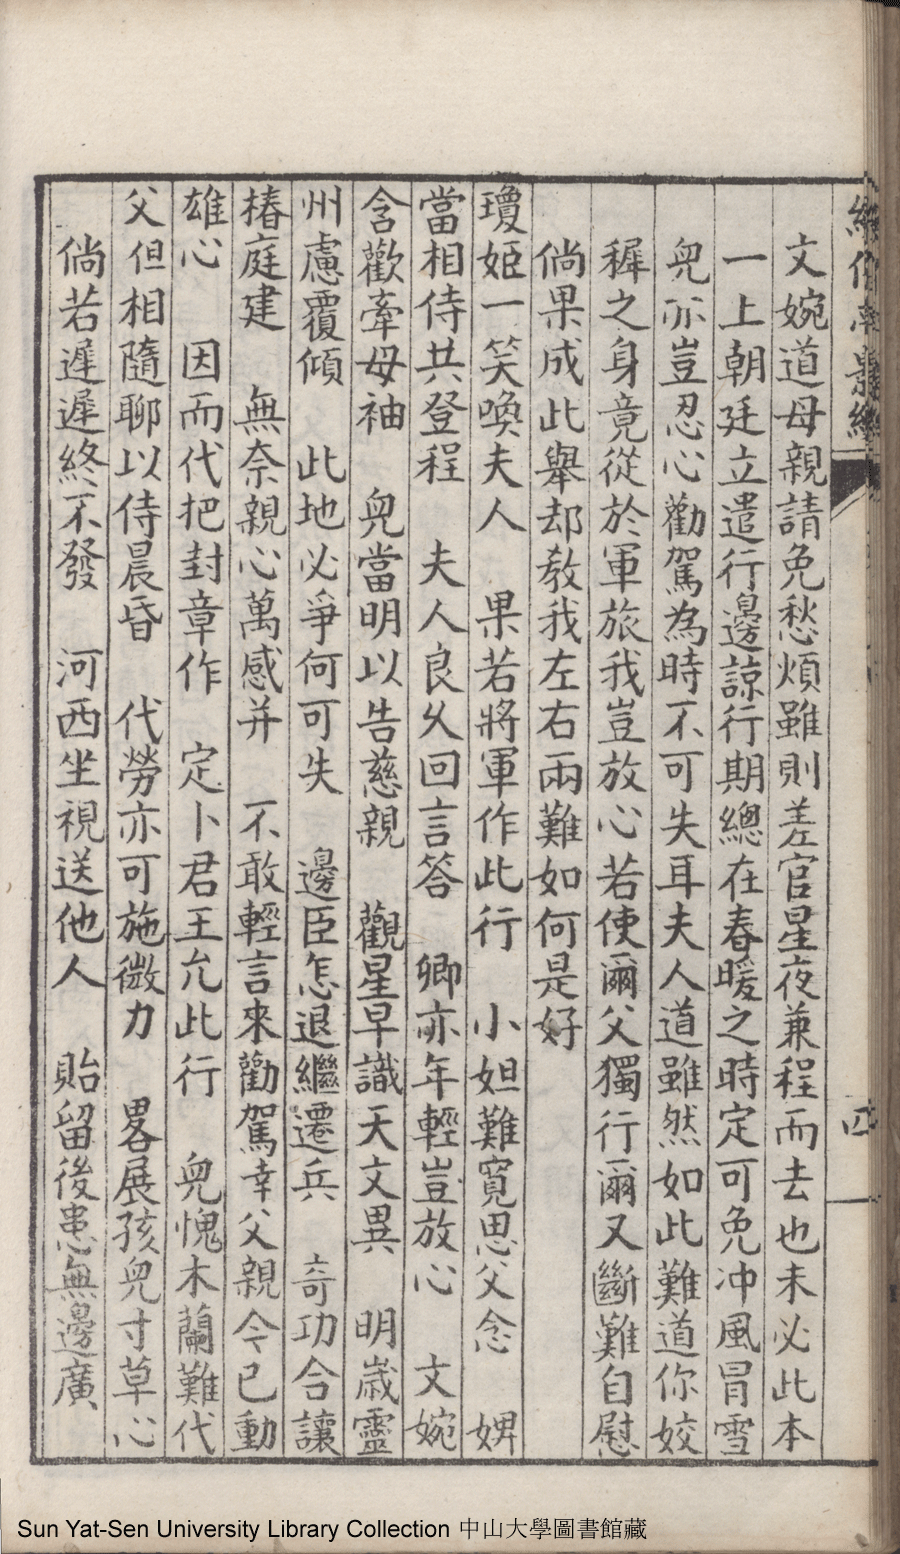 文婉道母親請免愁煩雖則差官星夜兼程而去也未必此本
一上朝廷立遣行邊諒行期總在春暖之時定可免冲風冒雪
兒亦豈忍心勸駕為時不可失耳夫人道雖然如此難道你姣
穉之身竟從於軍旅我豈放心若使爾父獨行爾又斷難自慰
倘果成此舉却教我左右兩難如何是好
瓊姬一笑喚夫人 果若將軍作此行 小妲難寬思父念 婢
當相侍共登程 夫人良久回言答 卿亦年輕豈放心 文婉
含歡牽母袖 兒當明以告慈親 觀星早識天文異 明歲靈
州慮覆傾 此地必爭何可失 邊臣怎退繼遷兵 奇功合讓
椿庭建 無奈親心萬感并 不敢輕言來勸駕幸父親今已動
雄心 因而代把封章作 定卜君王允此行 兒愧木蘭難代
父但相隨聊以侍晨昏 代勞亦可施微力 畧展孩兒寸草心
倘若遲遲終不發 河西坐視送他人 貽留後患無邊廣
四
Sun Yat-Sen University Library Collection 中山大學圖書館藏